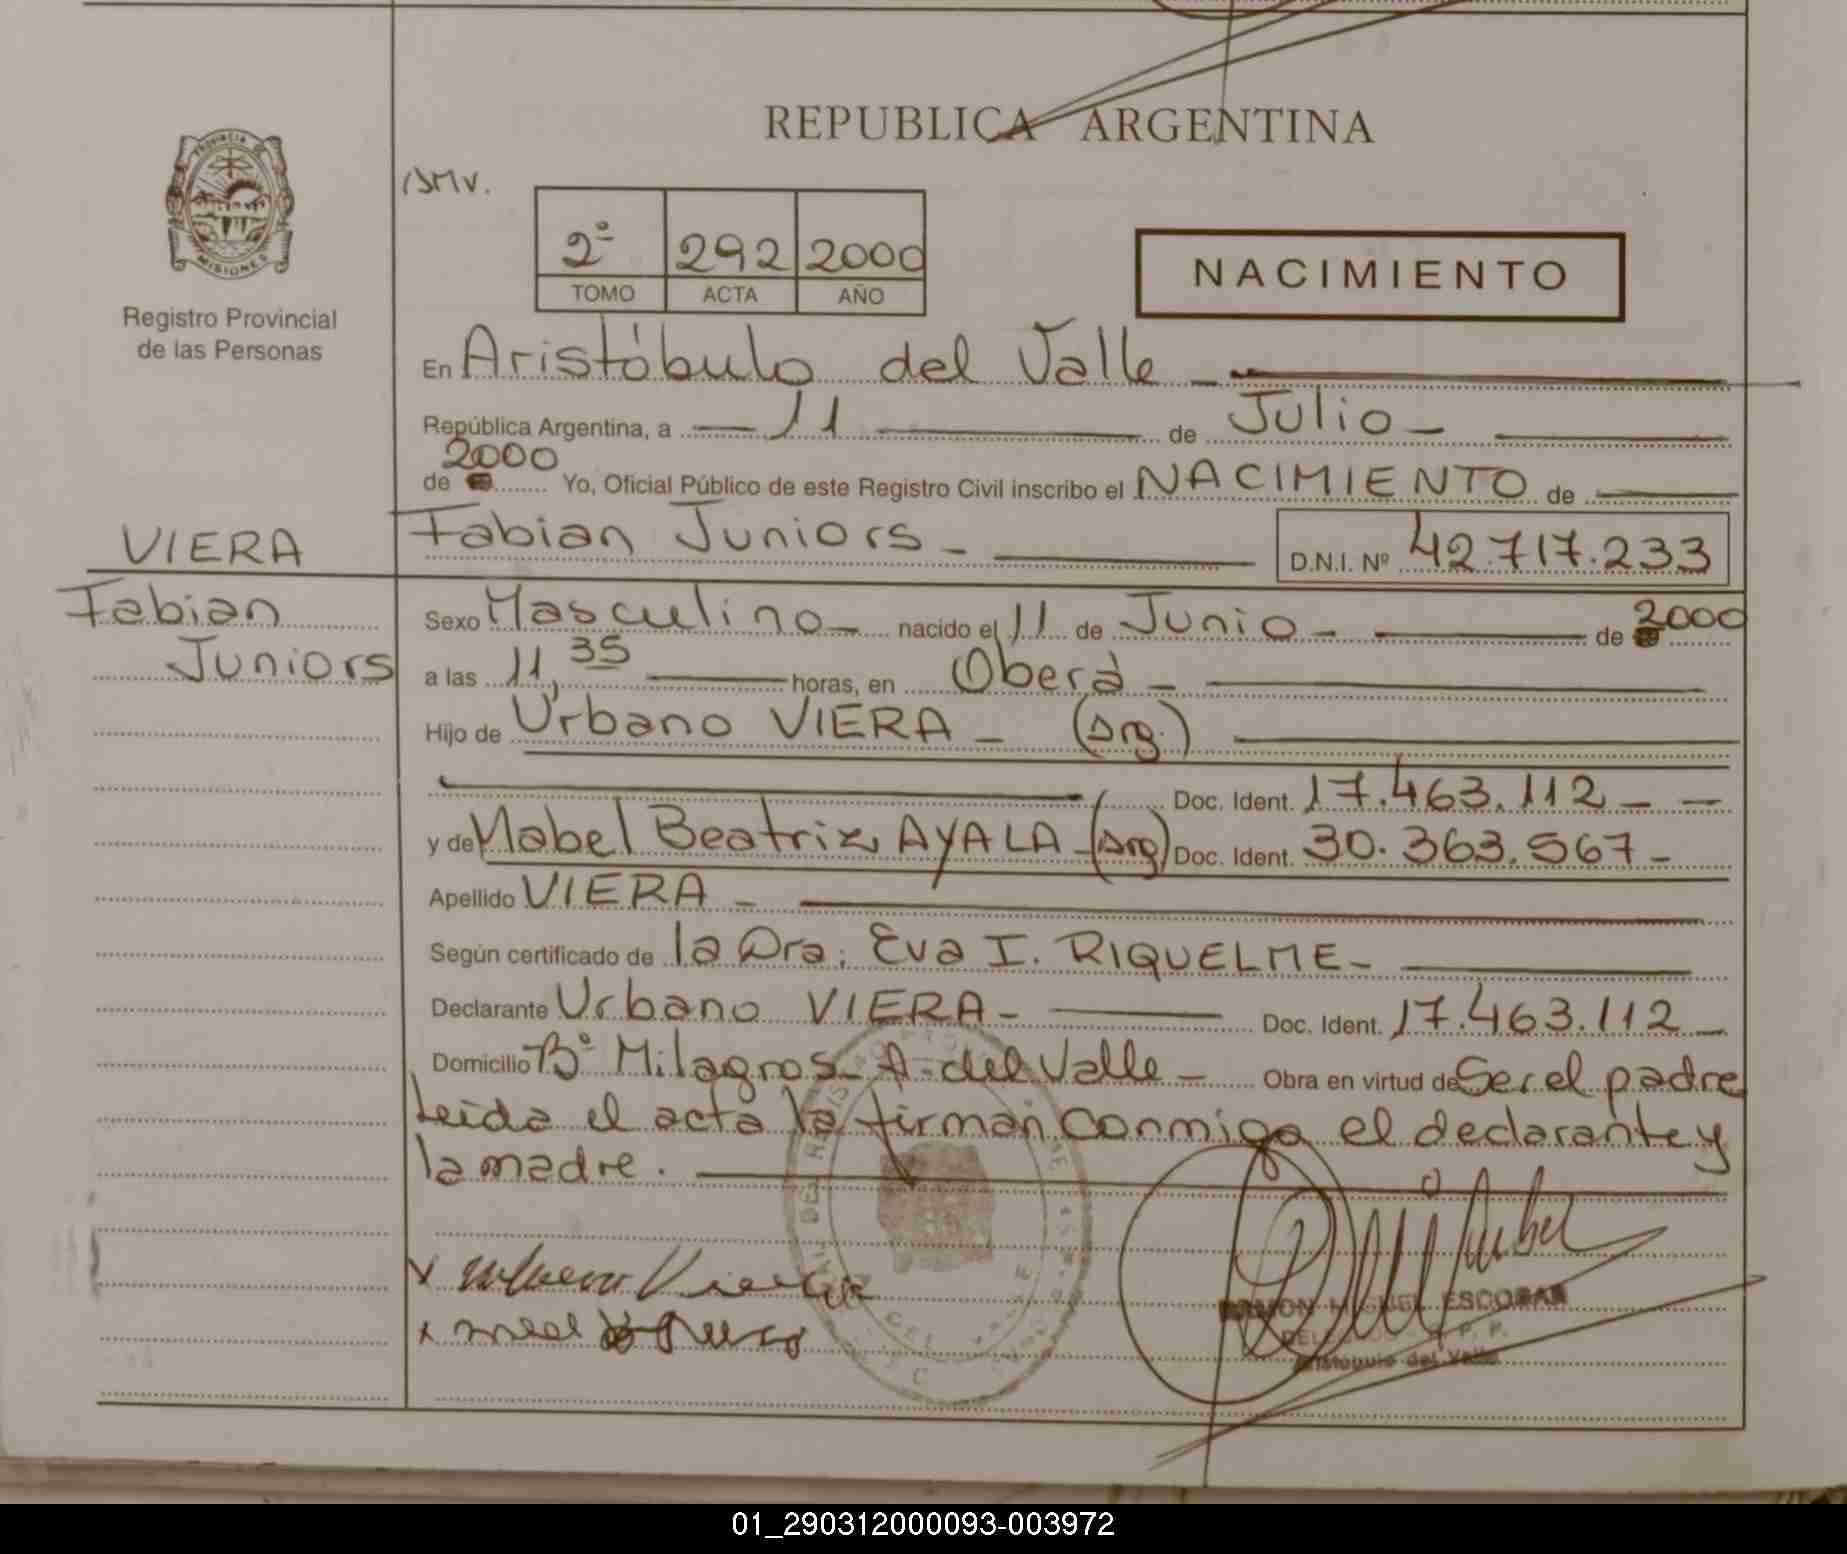 REPUBLICA ARGENTINA
PROVINCIA DE
MISIONES
Registro Provincial
de las Personas
2º 292 2000
TOMO ACTA AÑO
NACIMIENTO
En Aristóbulo del Valle
República Argentina, a 11 de Julio
2000
de Yo, Oficial Público de este Registro Civil inscribo el NACIMIENTO de
VIERA
Fabian
Juniors
Fabian Juniors D.N.I. Nº 42.717.233
Sexo Masculino nacido el 11 de Junio de 2000
a las 11,35 horas, en Oberá
Hijo de Urbano VIERA (Arg.)
Doc. Ident. 17.463.112
y de Mabel Beatriz AYALA (Arg) Doc. Ident. 30.363.567
Apellido VIERA
Según certificado de la Dra. Eva I. RIQUELME
Declarante Urbano VIERA Doc. Ident. 17.463.112
Domicilio Bº Milagros - A. del Valle Obra en virtud de Ser el padre
Leída el acta la firman conmigo el declarante y
la madre.
RAMON MIGUEL ESCOBAR
Aristóbulo del Valle
01_290312000093-003972